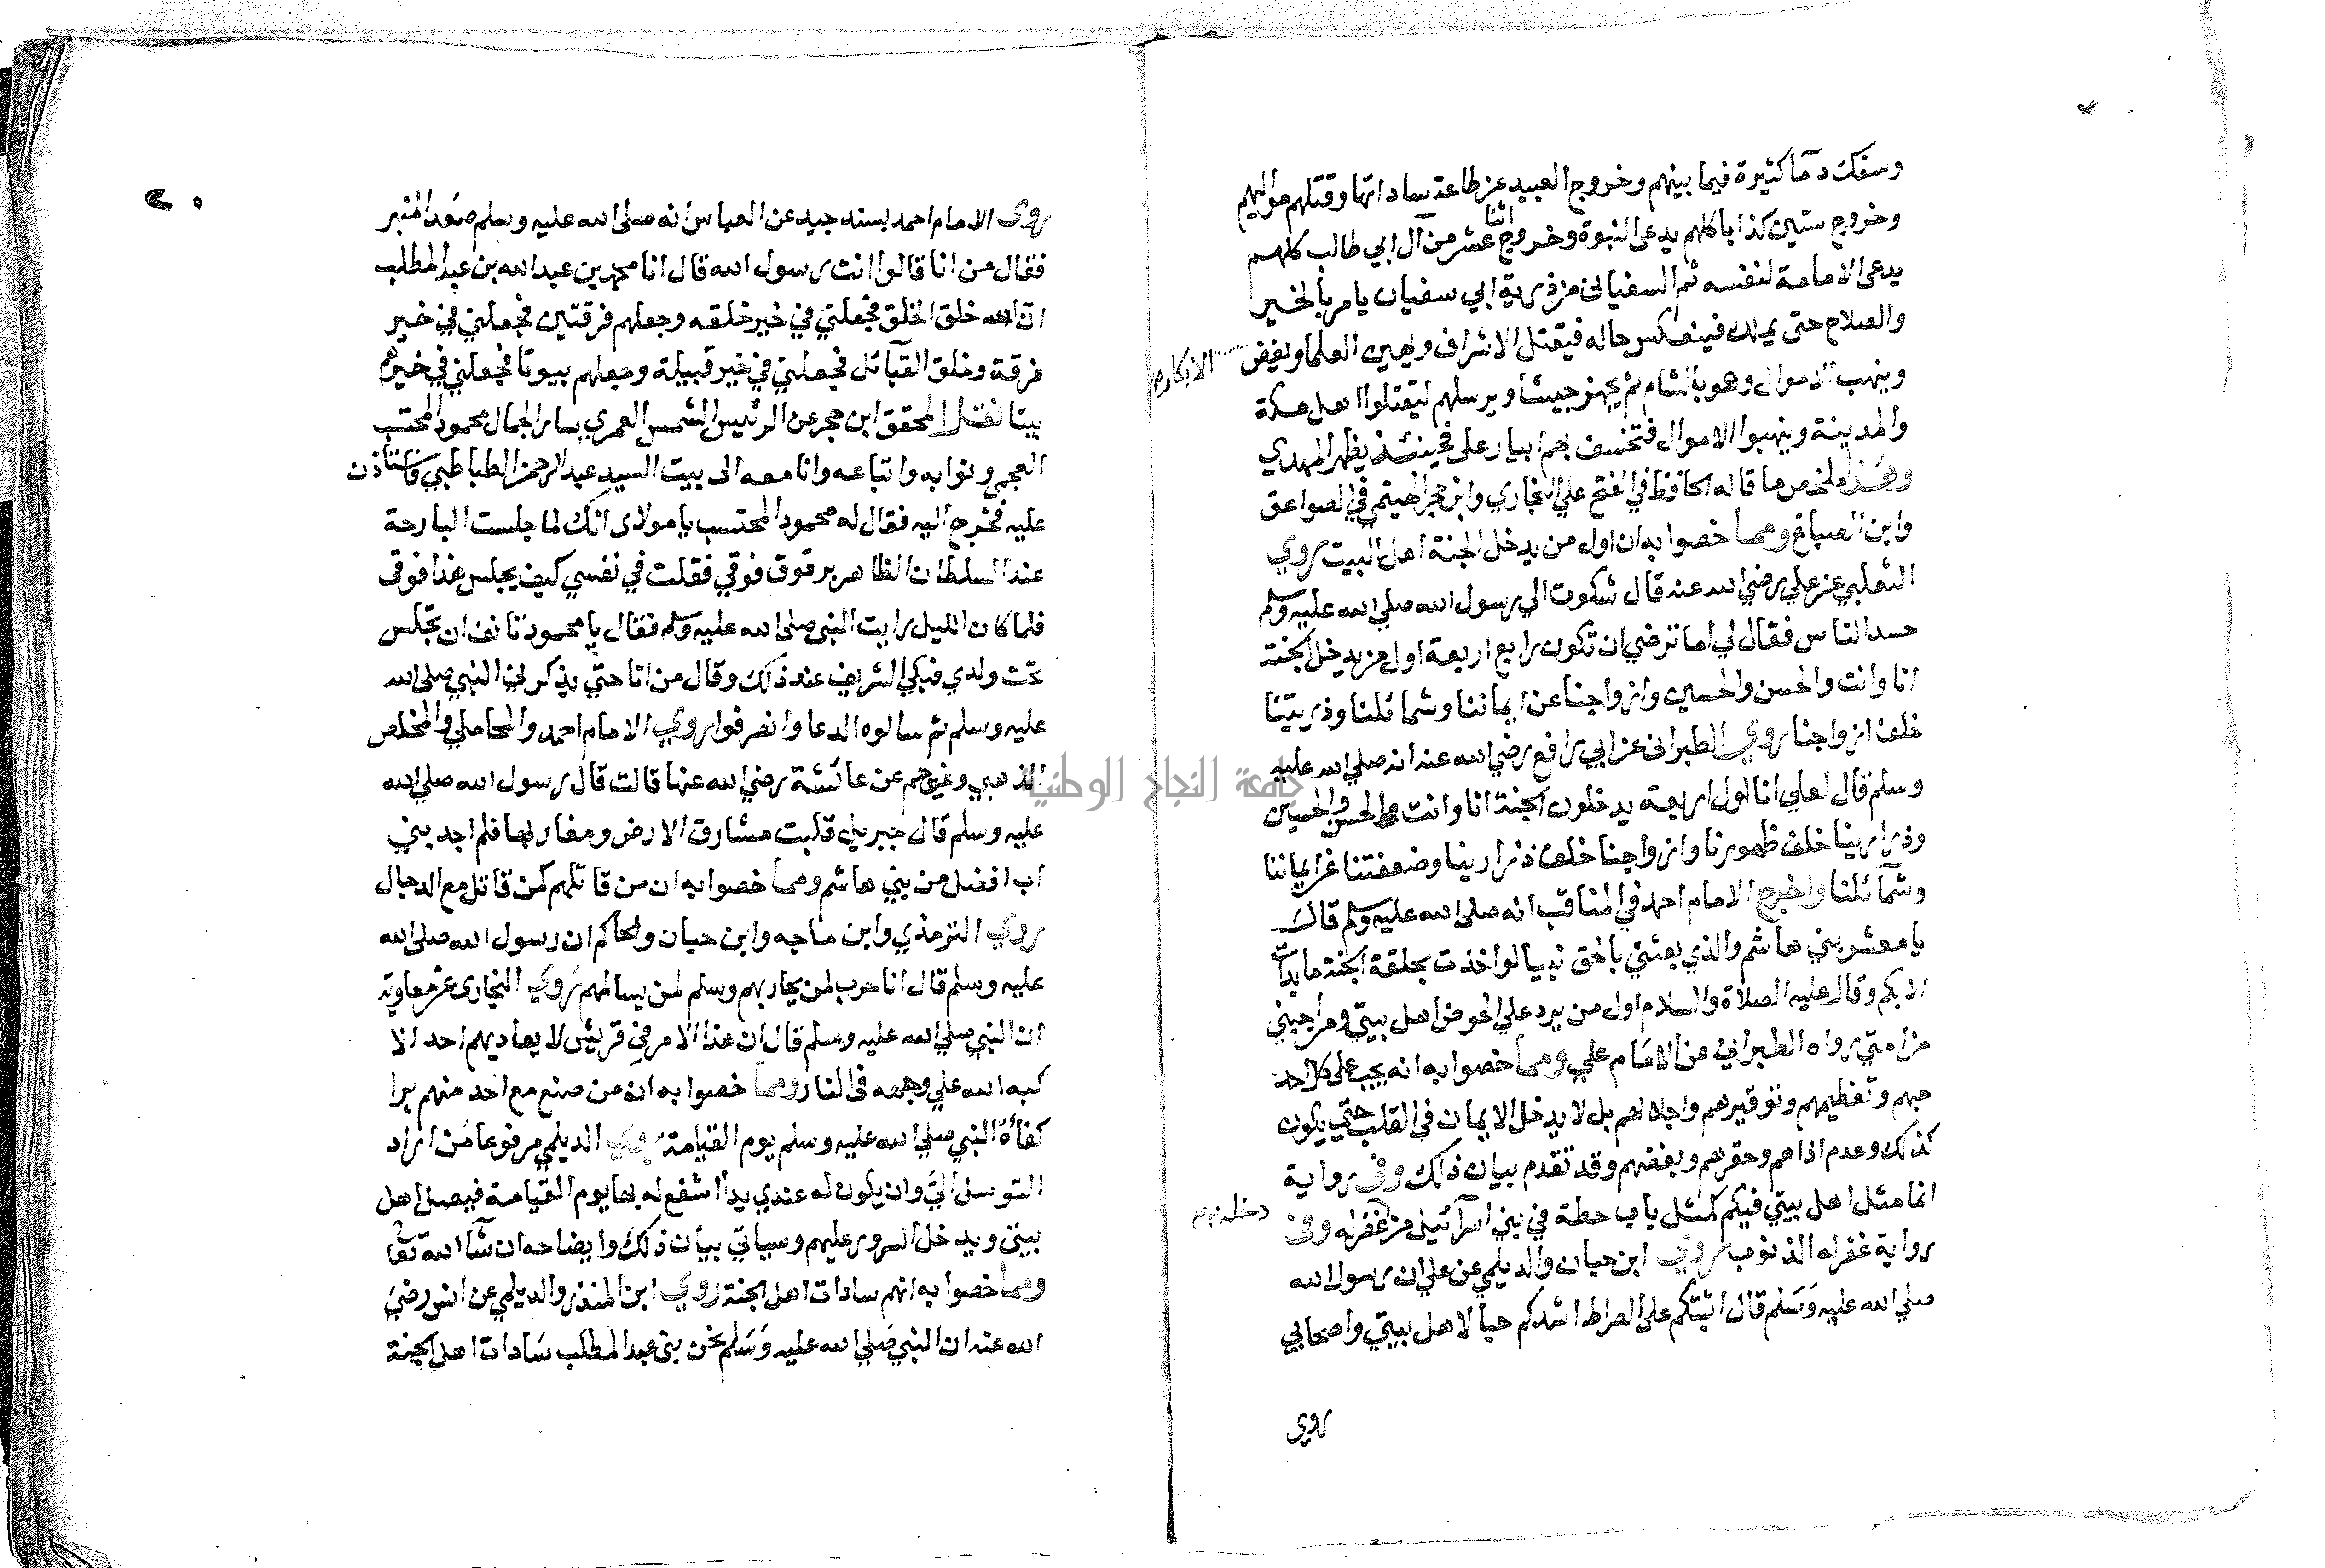 وسفك دمآ كثيرة فيما بينهم وخروج العبيد عن طاعة ساداتها وقتلهم مواليهم
وخروج ستين كذابا كلهم يدعى النبوة وخروج اثنا عشر من آل ابي طالب كلهم
يدعى الامامة لنفسه ثم السفيانى من ذرية ابي سفيان يامر بالخير
والصلاح حتى يملك فينعكس حاله فيقتل الاشراف ويهين العلما ويفيض
الابكار
وينهب الاموال وهو بالشام ثم يجهز جيشا ويرسلهم ليقتلوا اهل مكة
والمدينة وينهبوا الاموال فتخسف بهم ابيار على فحينئذ يظهر المهدي
وهذا ملخص ما قاله الحافظ في الفتح علي البخاري وابن حجر الهيتمي في الصواعق
وابن الصباغ ومما خصوا به ان اول من يدخل الجنة اهل البيت روي
الثعلبي عن علي رضي الله عنه قال شكوت الي رسول الله صلي الله عليه وسلم
حسد الناس فقال لي اما ترضي ان تكون رابع اربعة اول من يدخل الجنة
انا وانت والحسن والحسين وازواجنا عن ايماننا وشمائلنا وذريتنا
خلف ازواجنا روي الطبرانى عن ابي رافع رضي الله عنه انه صلي الله عليه
وسلم قال لعلي انا اول اربعة يدخلون الجنة انا وانت والحسن والحسين
وذرارينا خلف ظهورنا وازواجنا خلف ذرارينا وضعفتنا عن ايماننا
وشمآئلنا واخرج الامام احمد في المناقب انه صلى الله عليه وسلم قال
يا معشر بني هاشم والذي بعثني بالحق نبيا لو اخذت بحلقة الجنة ما بدأت
الا بكم وقال عليه الصلاة والسلام اول من يرد علي الحوض اهل بيتي ومن احبني
من امتي رواه الطبراني عن الامام علي ومما خصوا به انه يجب على كل احد
حبهم وتعظيمهم وتوقيرهم واجلالهم بل لا يدخل الايمان في القلب حتي يكون
كذلك وعدم اذاهم وحقرهم وبغضهم وقد تقدم بيان ذلك وفي رواية
انما مثل اهل بيتي فيكم كمثل باب حطة في بني اسرآئيل من غفر له وفي
دخله
رواية غفر له الذنوب روي ابن حبان والديلمي عن علي ان رسول الله
صلي الله عليه وسلم قال اثبتكم على الصراط اشدكم حبا لاهل بيتي واصحابي
روي
٢٠
روى الامام احمد بسند جيد عن العباس انه صلى الله عليه وسلم صعد المنبر
فقال من انا قالوا انت رسول الله قال انا محمد بن عبد الله بن عبد المطلب
ان الله خلق الخلق فجعلني في خير خلقه وجعلهم فرقتين فجعلني في خير
فرقة وخلق القبآئل فجعلني في خير قبيلة وجعلهم بيوتا فجعلني في خيرهم
بيتا نقل المحقق ابن حجر عن الرئيس الشمس العمري سار الجمال محمود المحتسب
العجمي ونوابه واتباعه وانا معه الى بيت السيد عبد الرحمن الطباطبي فاستاذن
عليه فخرج اليه فقال له محمود المحتسب يا مولاى انك لما جلست البارحة
عند السلطان الظاهر برقوق فوقي فقلت في نفسي كيف يجلس هذا فوقى
فلما كان الليل رايت النبى صلى الله عليه وسلم فقال يا محمود تانف ان تجلس
تحت ولدي فبكي الشريف عند ذلك وقال من انا حتي يذكرني النبي صلى الله
عليه وسلم ثم سالوه الدعا وانصرفوا روي الامام احمد والمحاملي والمخلص
الذهبي وغيرهم عن عائشة رضي الله عنها قالت قال رسول الله صلي الله
عليه وسلم قال جبريل قلبت مشارق الارض ومغاربها فلم اجد بني
اب افضل من بني هاشم ومما خصوا به ان من قاتلهم كمن قاتل مع الدجال
روي الترمذي وابن ماجه وابن حبان والحاكم ان رسول الله صلى الله
عليه وسلم قال انا حرب لمن يحاربهم وسلم لمن يسالمهم روي البخارى عن معاوية
ان النبي صلي الله عليه وسلم قال ان هذا الامر في قريش لا يعاديهم احد الا
كبه الله علي وجهه فى النار ومما خصوا به ان من صنع مع احد منهم برا
كفأه النبي صلي الله عليه وسلم يوم القيامة روي الديلمي مرفوعا من اراد
التوسل الي وان يكون له عندي يدا اشفع له بها يوم القيامة فيصل اهل
بيتى ويدخل السرور عليهم وسياتي بيان ذلك وايضاحه ان شآ الله تعا
ومما خصوا به انهم سادات اهل الجنة روي ابن المنذر والديلمي عن انس رضي
الله عنه ان النبي صلي الله عليه وسلم نحن بنى عبد المطلب سادات اهل الجنة
جامعة النجاح الوطنية